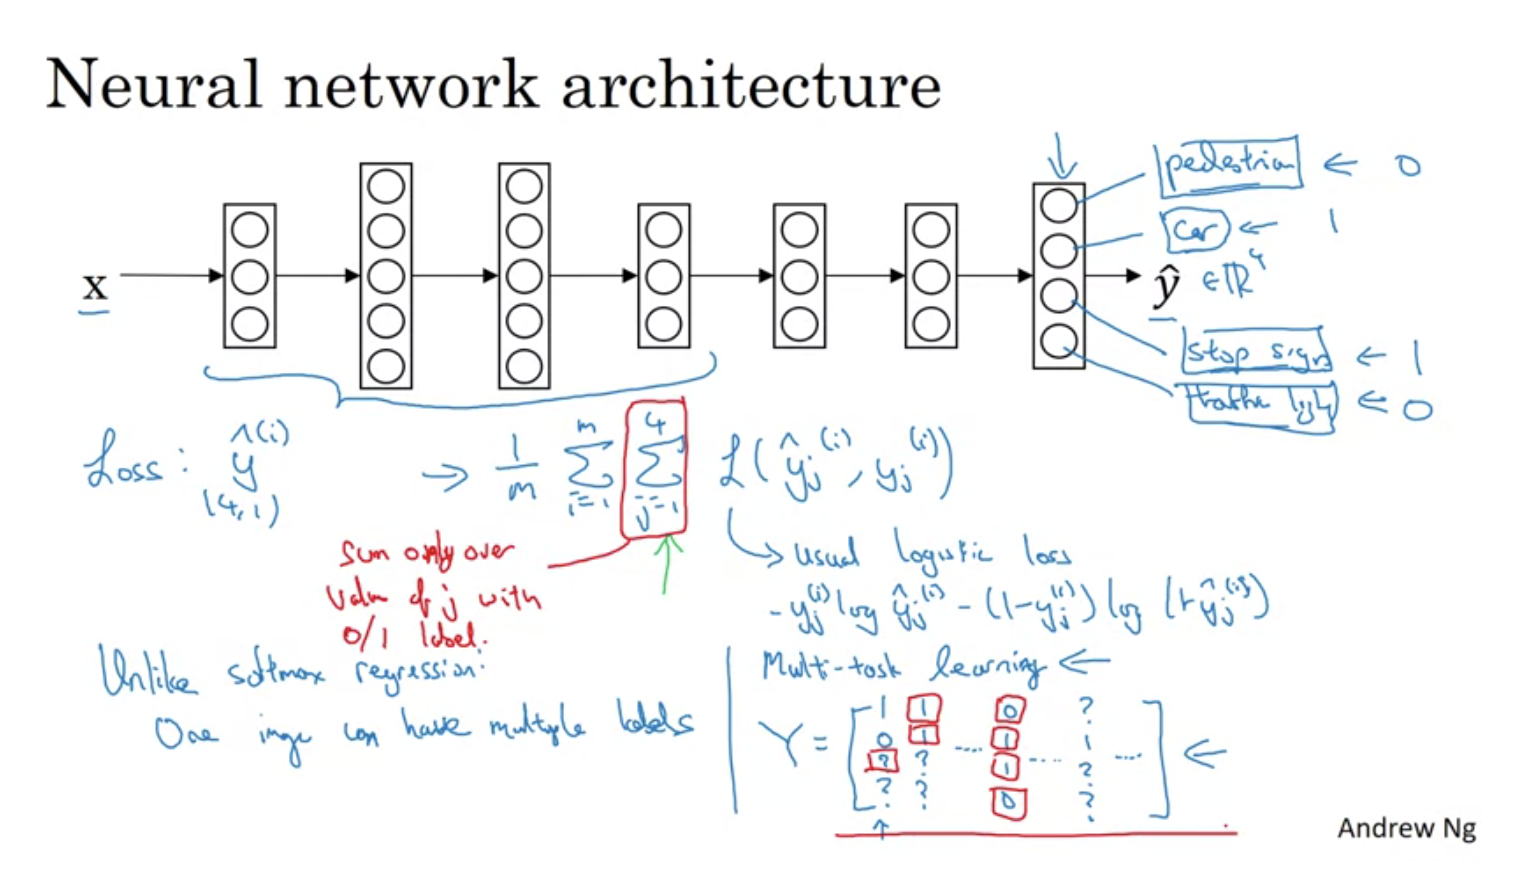 Neural network architecture
pedestrian ← 0
car ← 1
x
ŷ ∈ ℝ⁴
stop sign ← 1
traffic light ← 0
Loss: ŷ^(i) → 1/m Σ_{i=1}^{m} Σ_{j=1}^{4} L(ŷ_j^(i), y_j^(i))
(4,1)
sum only over
value of j with
0/1 label.
usual logistic loss
- y_j^(i) log ŷ_j^(i) - (1-y_j^(i)) log (1-ŷ_j^(i))
Unlike softmax regression:
One image can have multiple labels
Multi-task learning ←
1 1 0 ?
0 1 .... 1 .... 1 ....
Y = [ ] ←
? ? 1 ?
? ? 0 ?
Andrew Ng